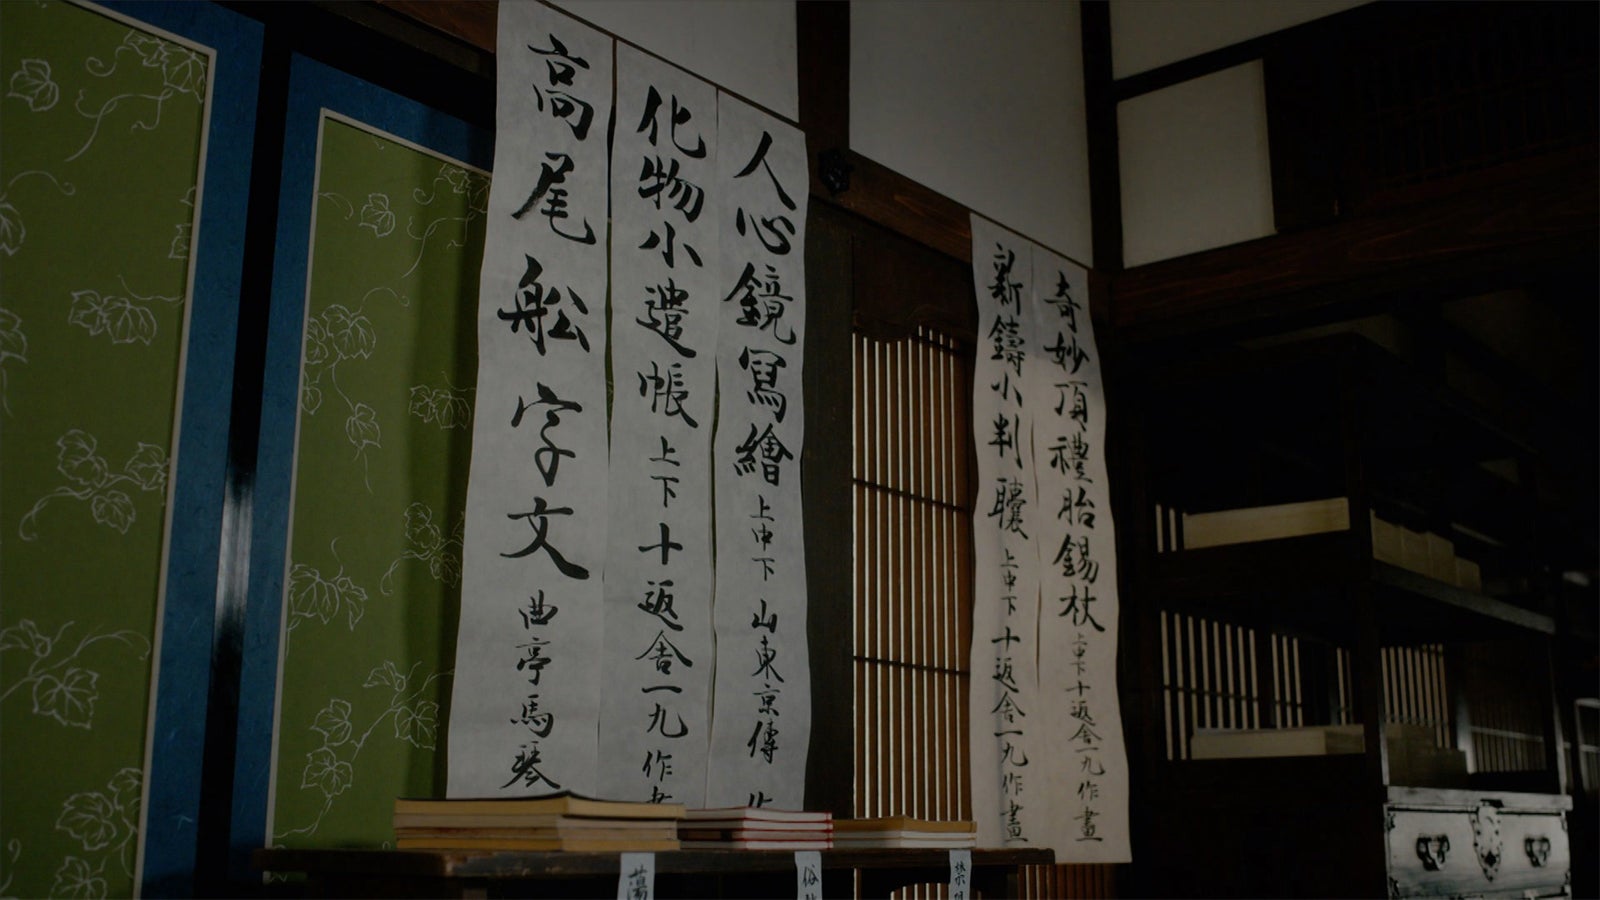 奇妙頂禮胎錫杖 上中下 十返舎一九作畫
新鑄小判𩟖 上中下 十返舎一九作畫
人心鏡寫繪 上中下 山東京傳
化物小遣帳 上下 十返舎一九作
高尾舩字文 曲亭馬琴